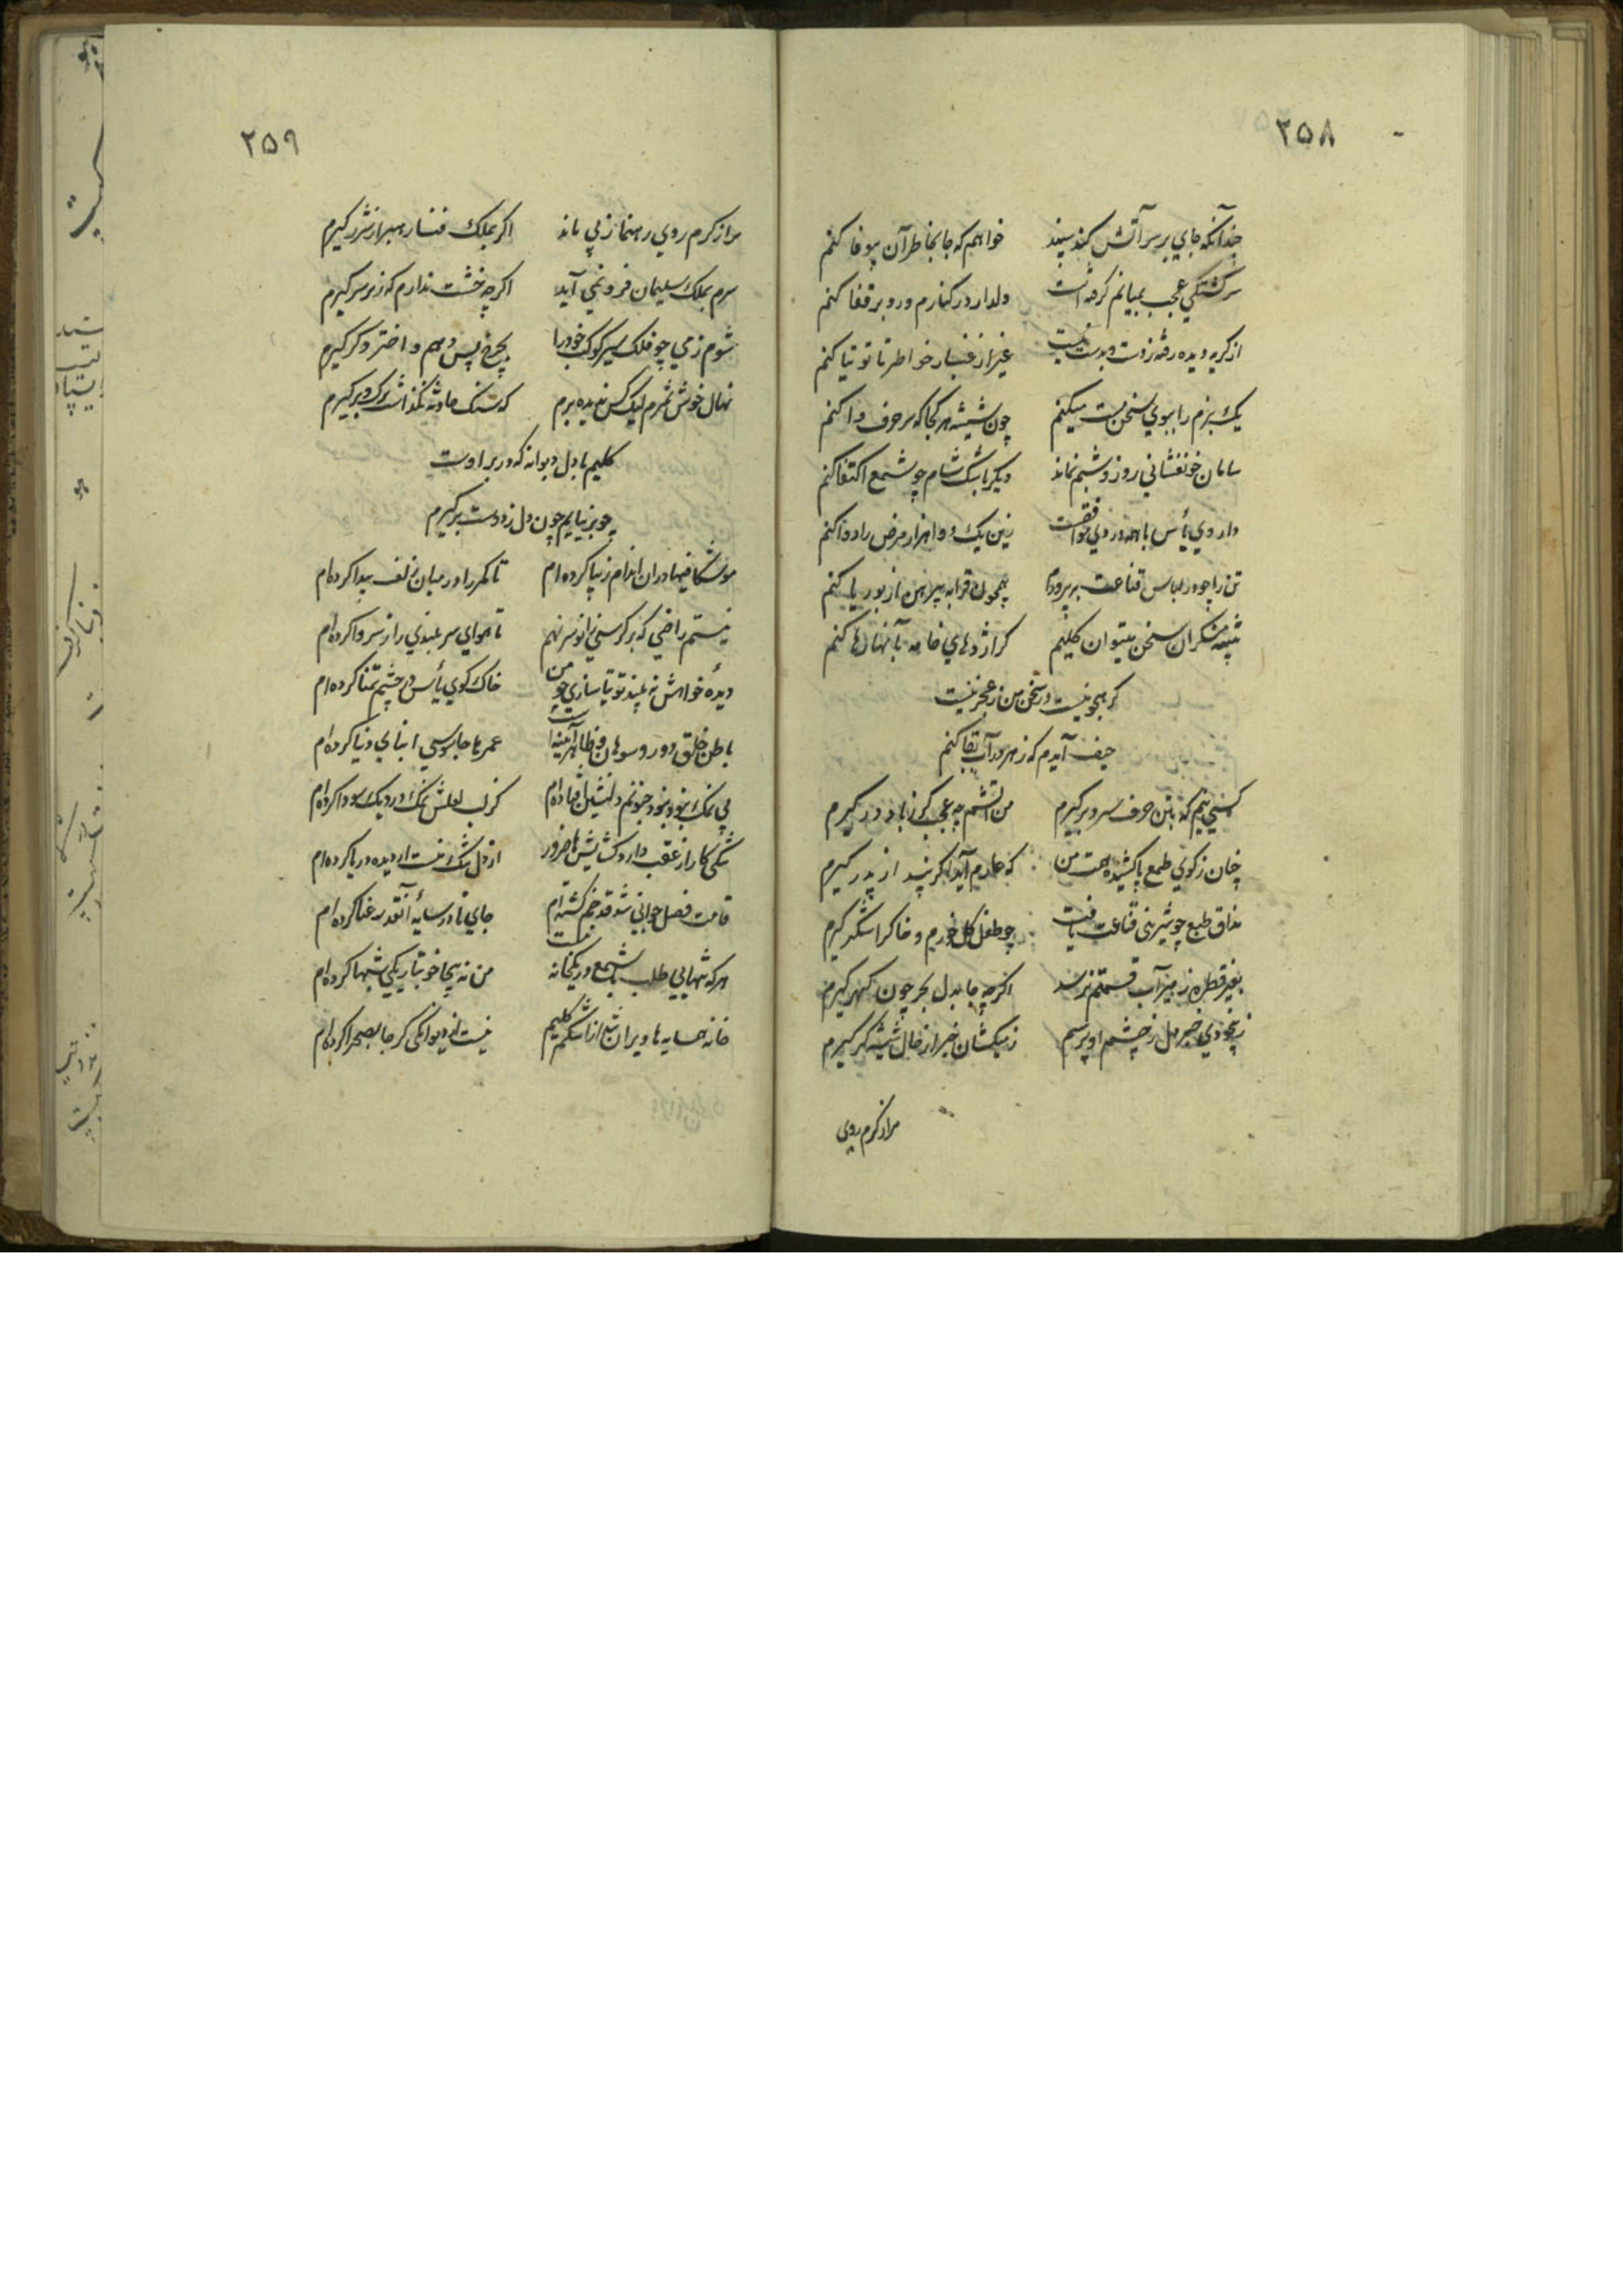 ۲۵۸
چندانکه جاي بر سر آتش کند سپند خواهم که جا بخاطر آن بیوفا کنم
سرگشتگي عجب بمیانم گرفته است دلدار در کنارم و رو بر قفا کنم
از گریه دیده رفته ز دست و بدست نیست غیر از غبار خواطر تا توتیا کنم
یک بزم را ببوي سخن مست میکنم چون شیشه هر کجا که سر حرف وا کنم
سامان خونفشاني روز و شبم نماند دیگر باشک شام چو شمع اکتفا کنم
داروي یأس با همه دردي موافقست زین یک دوا هزار مرض را دوا کنم
تن را چو در لباس قناعت بپرورم همچون قرابه پیرهن از بوریا کنم
تنبیه منکران سخن میتوان کلیم گر اژدهاي خامه بآنها رها کنم
گر هجو نیست در سخن من ز عجز نیست
حیف آیدم که زهر در آب بقا کنم
کسي نیم که بتن حرف سر و بر گیرم من آتشم چه عجب گر ز باد در گیرم
چنان ز کوي طمع پا کشیده همت من که عارم آید اگر پند از پدر گیرم
مذاق طبع چو شیریني قناعت یافت چو طفل گل خورم و خاک را شکر گیرم
بغیر قطره ز میزآب قسمتم نرسد اگرچه جا بدل بحر چون گهر گیرم
ز بیخودي خبر مل ز چشم او پرسم ز میکشان خبر از خال شیشه گر گیرم
مرا ز گرم روي
۲۵۹
مرا ز گرم روي رهنما ز پي ماند اگر بملک فنا راهبر از شرر گیرم
سرم بملک سلیمان فرو نمي آید اگرچه خشت ندارم که زیر سر گیرم
شوم ز مي چو فلک سیر کوکب خود را بچرخ پس دهم و اختر دگر گیرم
نهال خوش ثمرم لیک کس ندیده برم که سنگ حادثه نگذاشت برگ و بر گیرم
کلیم با دل دیوانه که در بر اوست
چو بر نیایم چون دل ز دوست برگیرم
موشکافیها در ان اندام زیبا کرده ام تا کمر را در میان زلف پیدا کرده ام
نیستم راضي که بر کرسي زانو سر نهم تا هواي سر بلندي را ز سر وا کرده ام
دیدهٔ خواهش نه بیند توتیا سازي چو من خاک کوي یأس در چشم تمنا کرده ام
باطن خلق دو رو سوهان و ظاهر آینه است عمرها جاسوسي ابناي دنیا کرده ام
بي نمک بود و نبود جنونم دلنشین افتاده ام کز لب لعلش نمک در دیگ سودا کرده ام
تنگي کار از عقب دارد گشایشها ضرور از دل تنگ زنست از دیده دریا کرده ام
قامت فصل جواني شد قد خم گشته ام جاي تا در سایهٔ آنقدر رعنا کرده ام
هر که تنهایي طلب باشد شمع در یکخانه نیست من نه بیجا خو بتاریکي شبها کرده ام
خانه همسایه ها ویران شد از اشکم کلیم نیست از دیوانگي گر جا بصحرا کرده ام